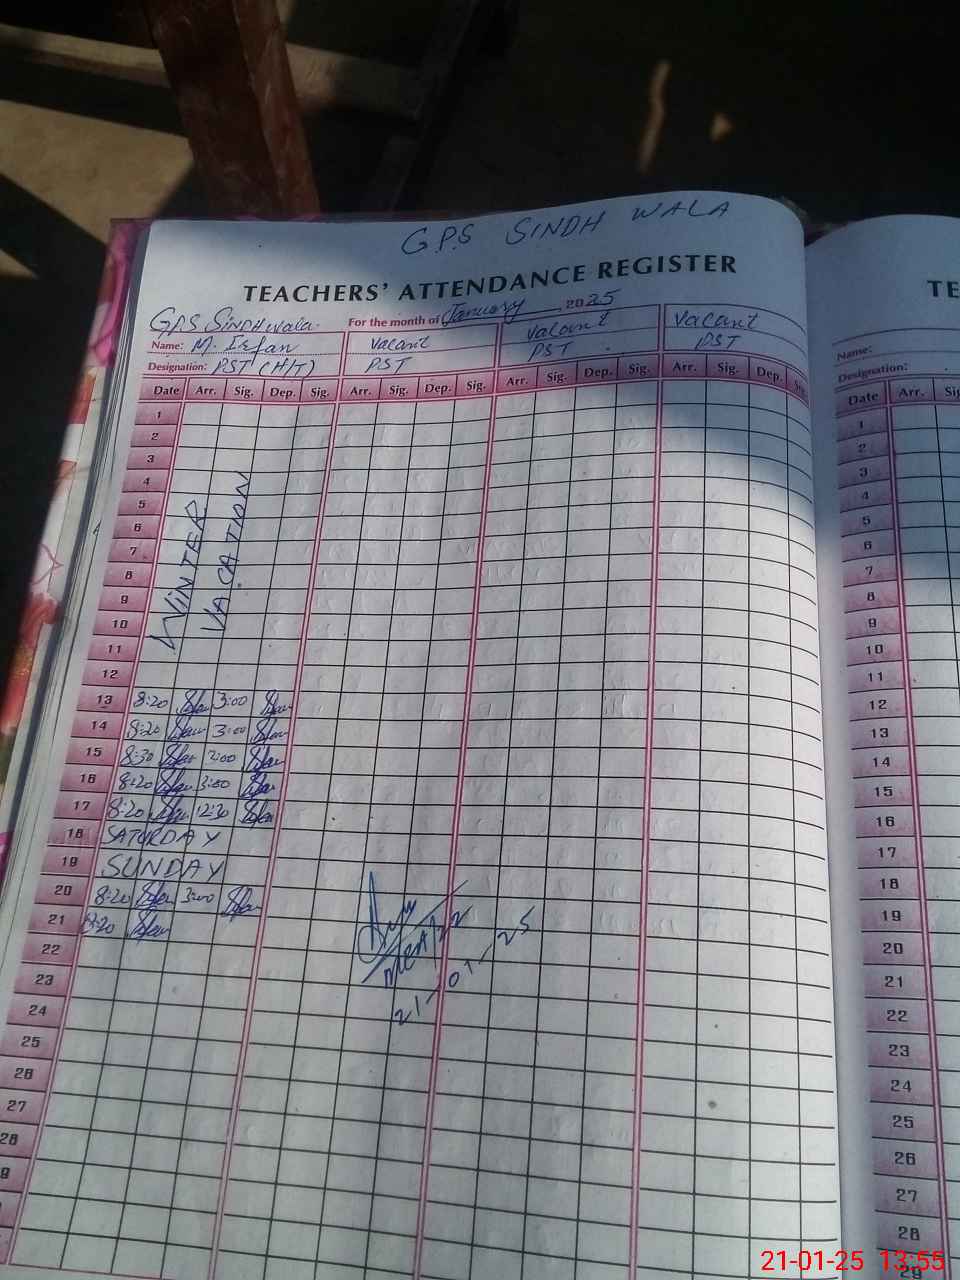 G.P.S SINDH WALA
TEACHERS' ATTENDANCE REGISTER
GPS SINDHwala. For the month of January 2025
Name: M. Irfan Vacant Vacant Vacant
Designation: PST (H/T) PST PST PST
Date Arr. Sig. Dep. Sig. Arr. Sig. Dep. Sig. Arr. Sig. Dep. Sig. Arr. Sig. Dep. Sig.
1
2
3
4
5
6
7
8
9
10
11
12
WINTER
VACATION
13 8:20 3:00
14 8:20 3:00
15 8:30 3:00
16 8:20 3:00
17 8:20 12:30
18 SATURDAY
19 SUNDAY
20 8:20 3:00
21 8:20
22
23
24
25
26
27
28
21-01-25
TE
Name:
Designation:
Date Arr. Sig
1
2
3
4
5
6
7
8
9
10
11
12
13
14
15
16
17
18
19
20
21
22
23
24
25
26
27
28
29
21-01-25 13:55